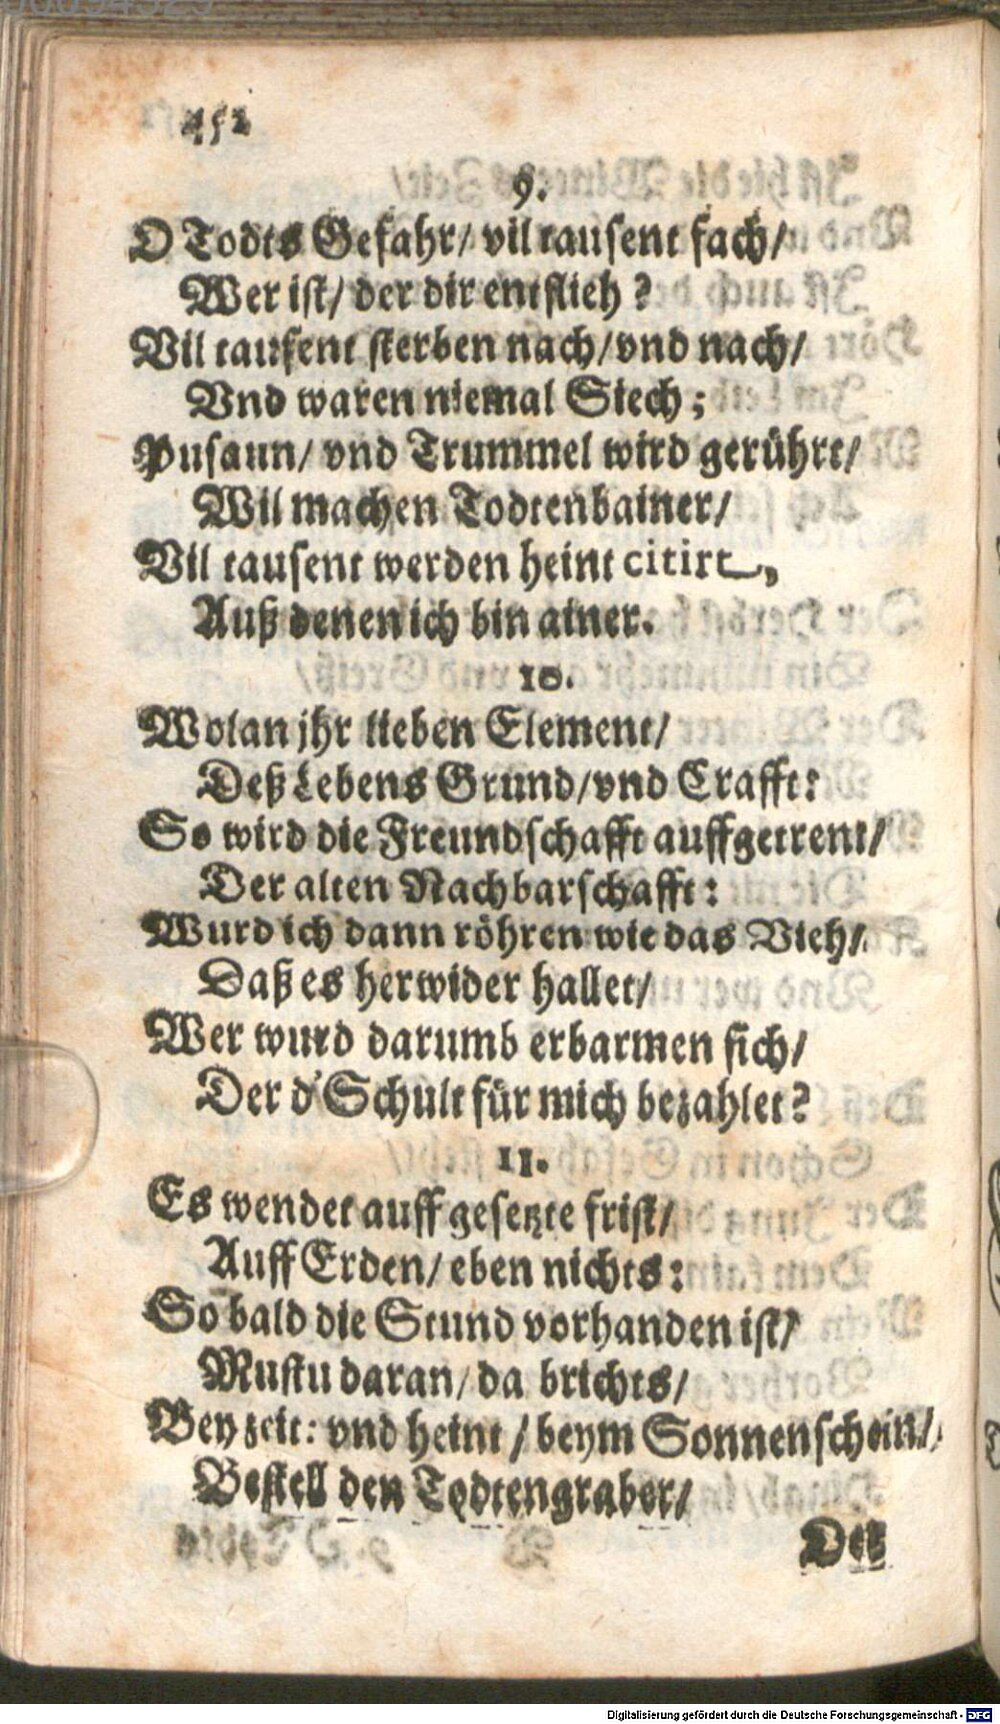 452
9.
O Todts Gefahr/ vil tausent fach/
Wer ist/ der dir entflieh?
Vil tausent sterben nach/ vnd nach/
Vnd waren niemal Siech;
Pusaun/ vnd Trummel wird gerührt/
Wil machen Todtenbainer/
Vil tausent werden heint citirt,
Auß denen ich bin ainer.
10.
Wolan jhr lieben Element/
Deß Lebens Grund/ vnd Crafft:
So wird die Freundschafft auffgetrent/
Der alten Nachbarschafft:
Wurd ich dann röhren wie das Vieh/
Daß es herwider hallet/
Wer wurd darumb erbarmen sich/
Der d'Schult für mich bezahlet?
11.
Es wendet auff gesetzte frist/
Auff Erden/ eben nichts:
So bald die Stund vorhanden ist/
Mustu daran/ da brichts/
Bey zeit: vnd heint / beym Sonnenschein/
Bestell den Todtengraber/
Der
Digitalisierung gefördert durch die Deutsche Forschungsgemeinschaft - DFG